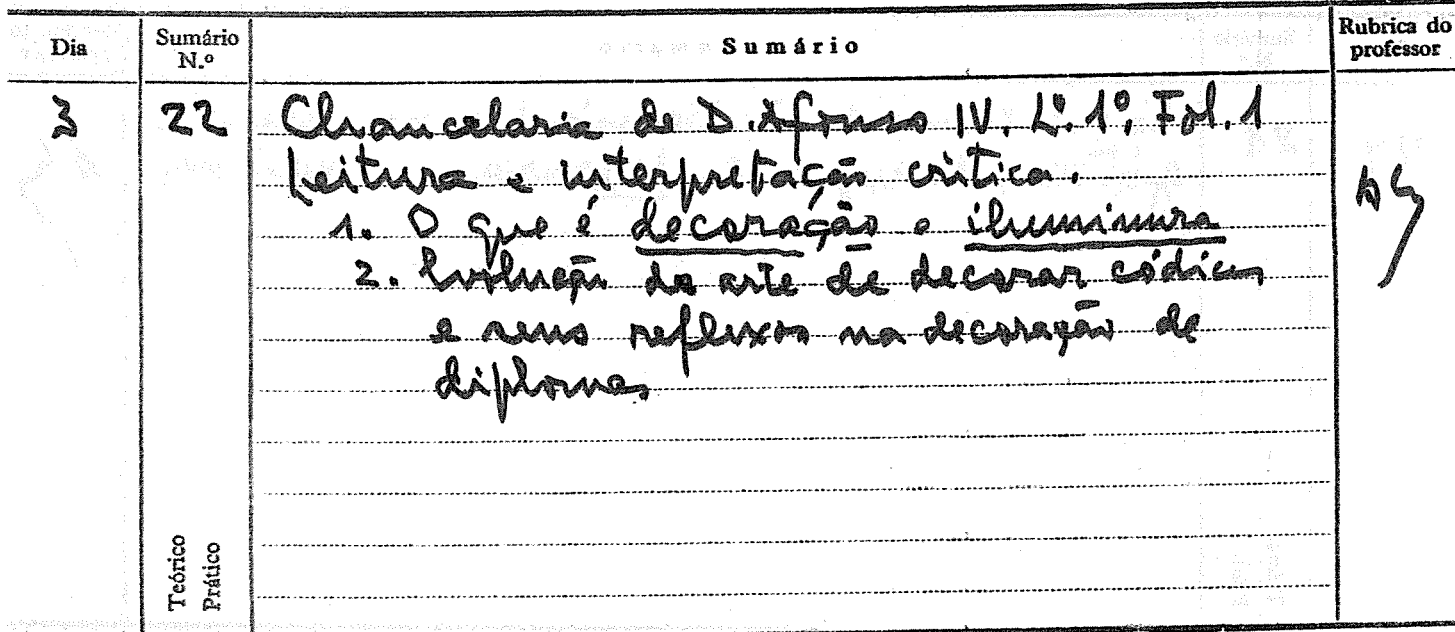 Dia Sumário N.º Sumário Rubrica do professor
3 22 Chancelaria de D. Afonso IV. L.º 1º, Fol. 1
Leitura e interpretação critica.
1. O que é decoração e iluminura
2. Evolução da arte de decorar códices
e seus reflexos na decoração de
diplomas
Teórico
Prático